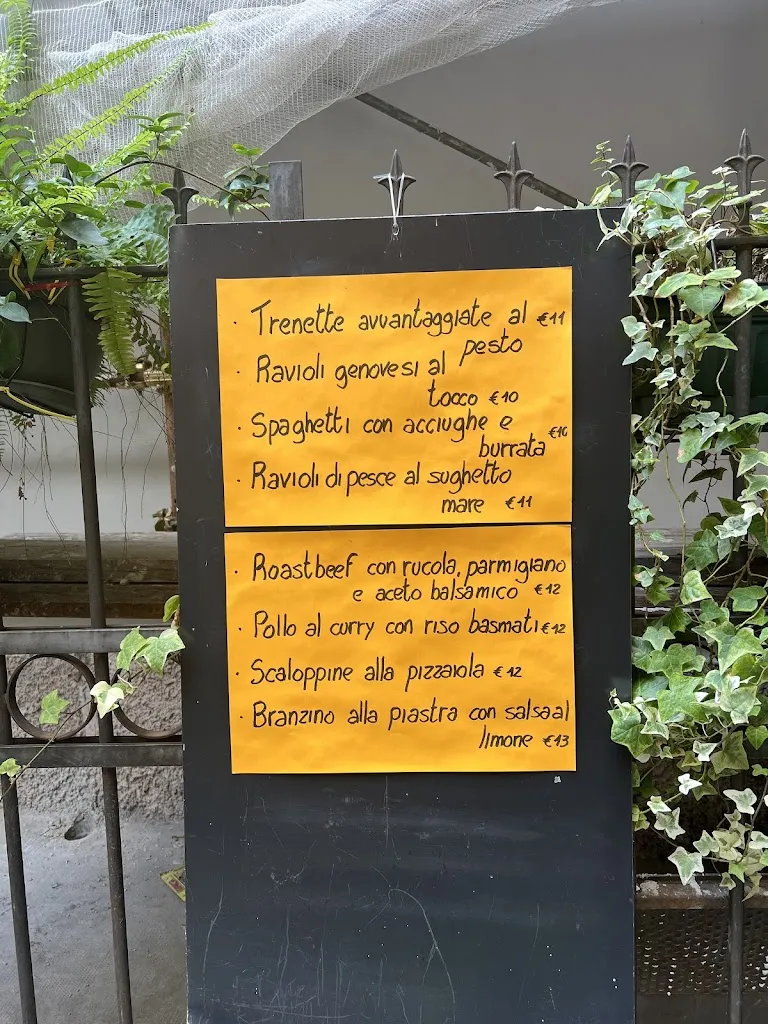 · Trenette avvantaggiate al €11
pesto
· Ravioli genovesi al
tocco €10
· Spaghetti con acciughe e €10
burrata
· Ravioli di pesce al sughetto
mare €11
· Roastbeef con rucola, parmigiano
e aceto balsamico €12
· Pollo al curry con riso basmati €12
· Scaloppine alla pizzaiola €12
· Branzino alla piastra con salsa al
limone €13